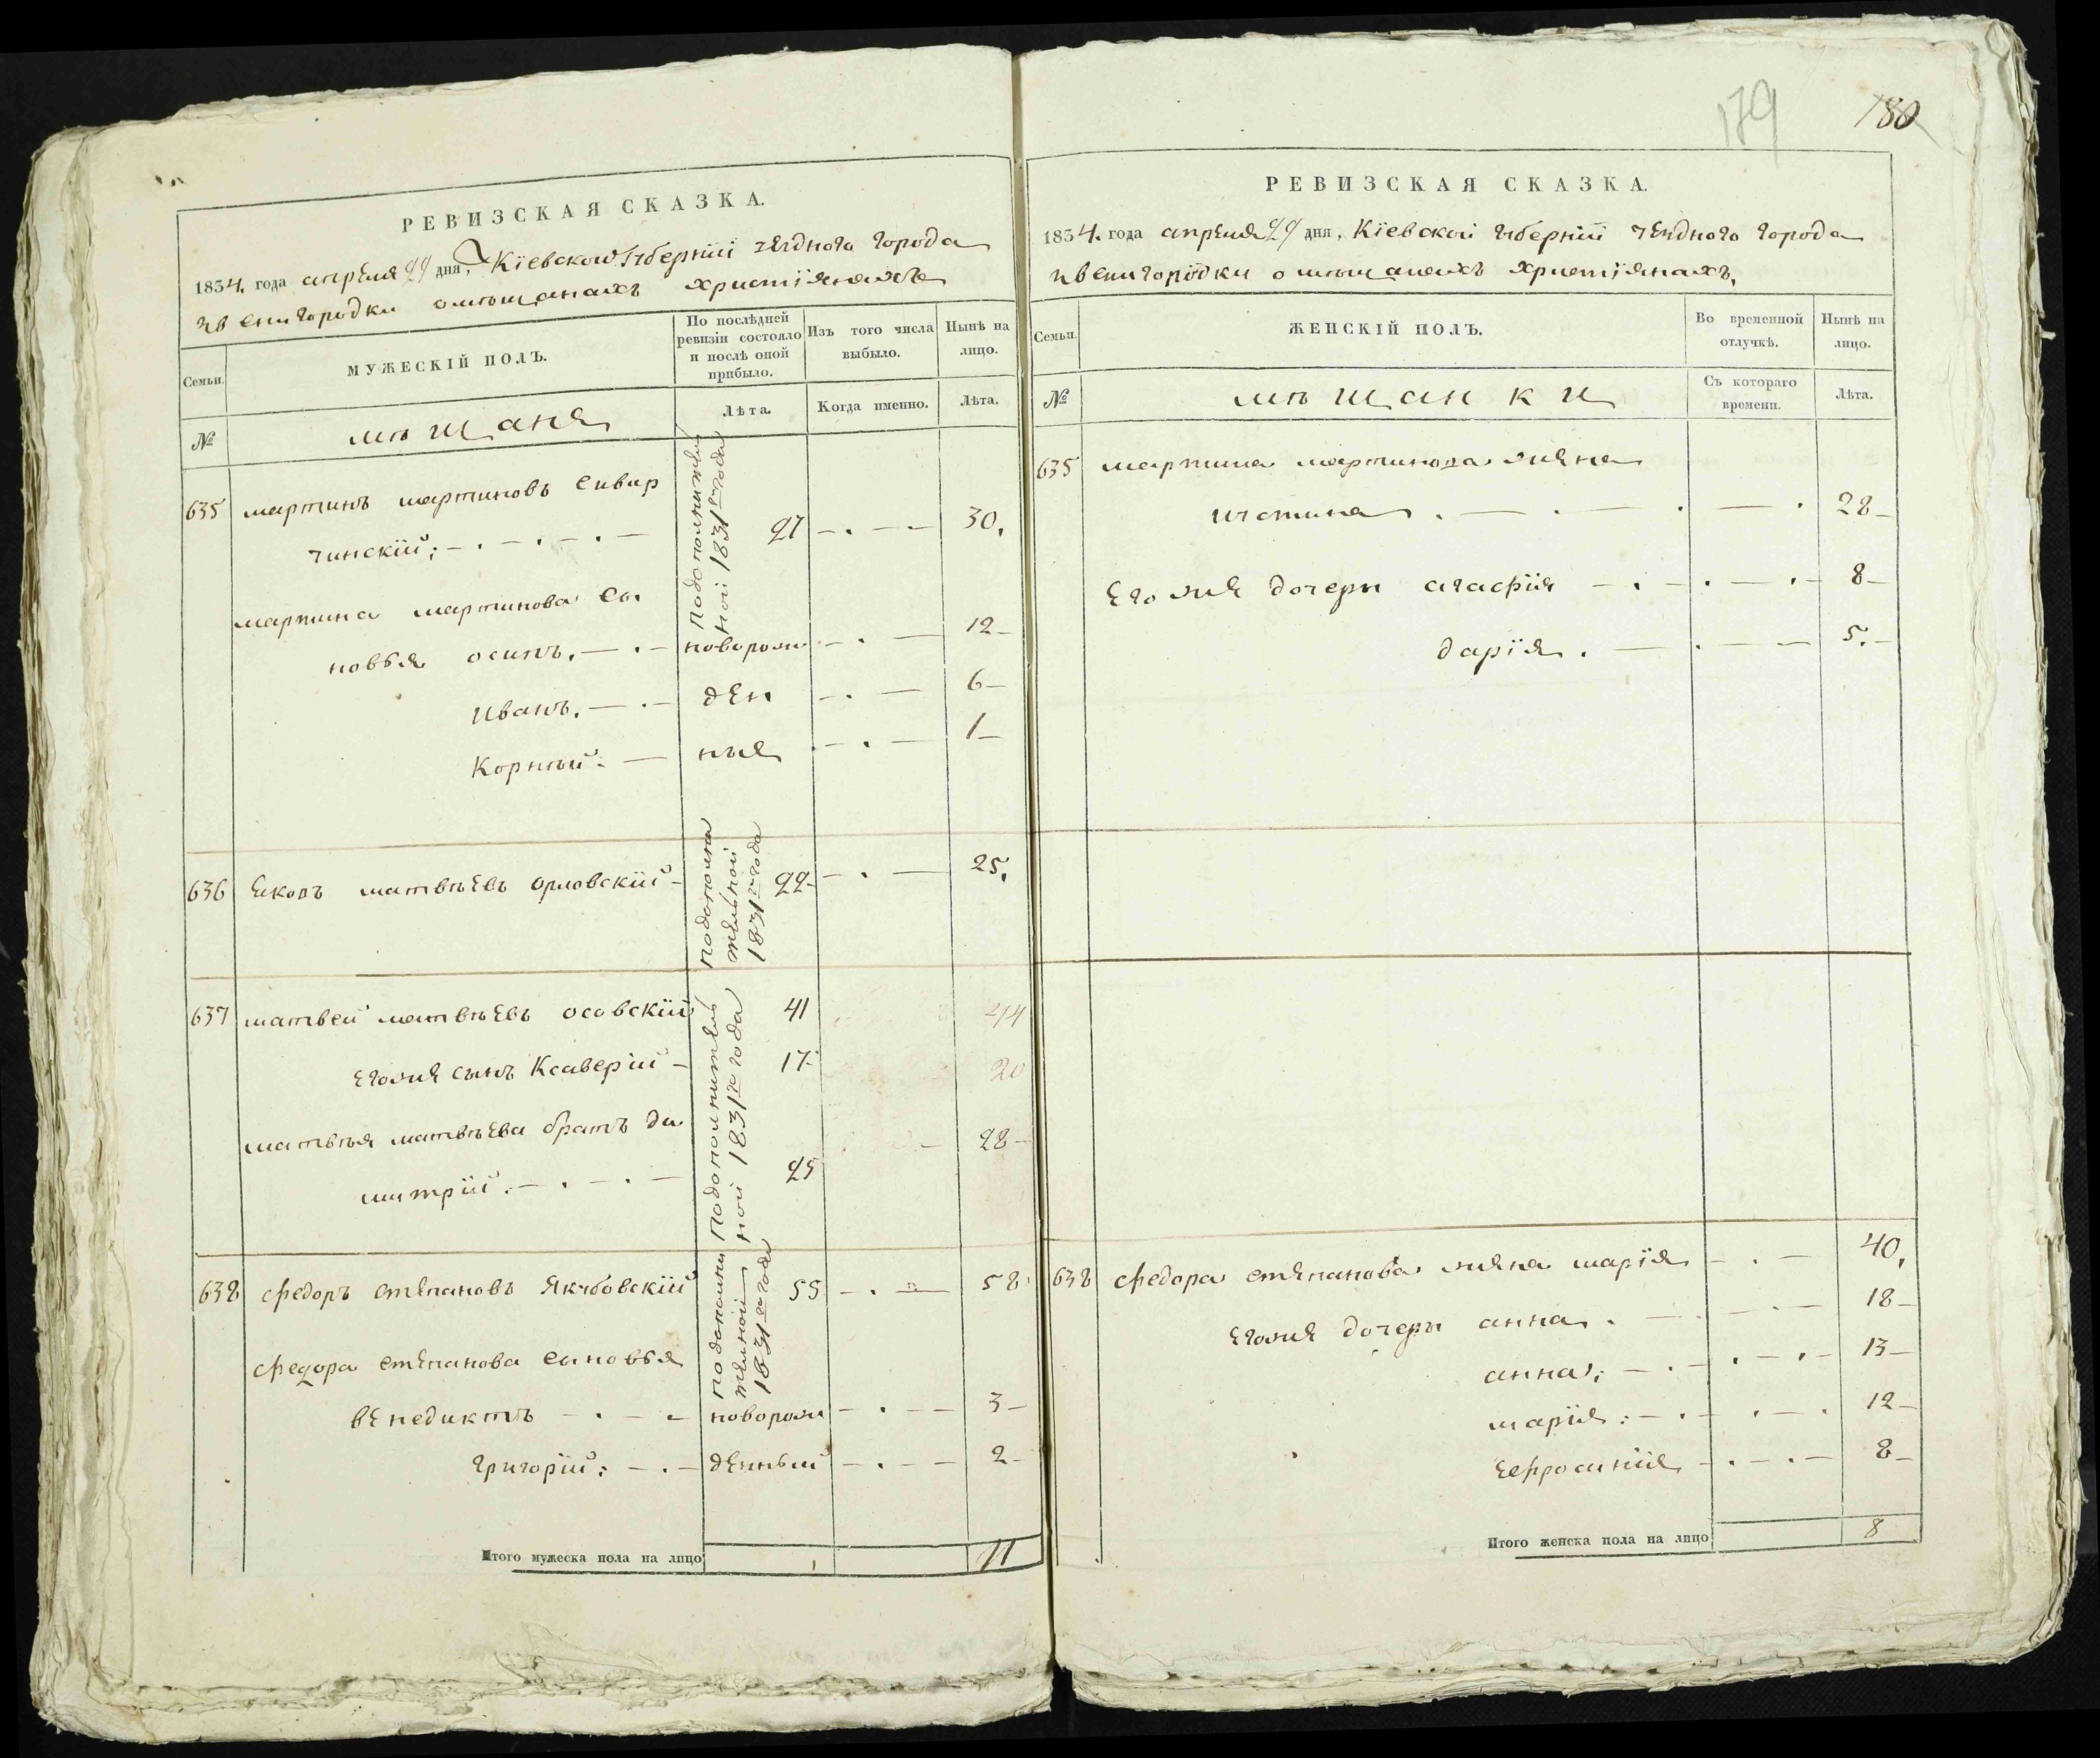 179
180
РЕВИЗСКАЯ СКАЗКА.
1834. года апреля 29 дня, Кіевской Губерніи уезднога города
звенигородки о мѣщанахъ христіянахъ
Семьи.
МУЖЕСКІЙ ПОЛЪ.
По послѣдней ревизіи состояло и послѣ оной прибыло.
Изъ того числа выбыло.
Нынѣ на лицо.
№
мѣщаня
Лѣта.
Когда именно.
Лѣта.
635 мартинъ мартиновъ сивир
чинскій; 27 30.
подополнитель
ной 1831го года
мартина мартинова сы
новѣя осипъ. новорож 12
иванъ. ден 6
Корный. ныя 1
636 Яковъ матвѣевъ орловскій 22 25.
подополни
тельной
1831го года
637 матвей матвѣевъ осовскій 41 44
егожя сынъ Ксаверій 17 20
матвѣя матвѣева братъ ди
митрій. 25 28
подополнитель
ной 1831го года
638 федоръ степановъ Якубовскій 55 58
подополни
телной
1831го года
федора степанова сыновѣя
венедиктъ новорож 3
григорій; денный 2
Итого мужеска пола на лицо 11
РЕВИЗСКАЯ СКАЗКА.
1834. года апреля 29 дня, Кіевской губерніи уезднога города
звенигородки о мѣщанахъ християнахъ.
Семьи.
ЖЕНСКІЙ ПОЛЪ.
Во временной отлучкѣ.
Нынѣ на лицо.
№
мѣщанки
Съ котораго времени.
Лѣта.
635 мартина мартинова жена
иустина 28
его жя дочери агафія 8
дарія. 5.
638 федора степанова жена марія 40.
егожя дочери анна. 18
анна; 13
марія: 12
ефросинія 8
Итого женска пола на лицо 8